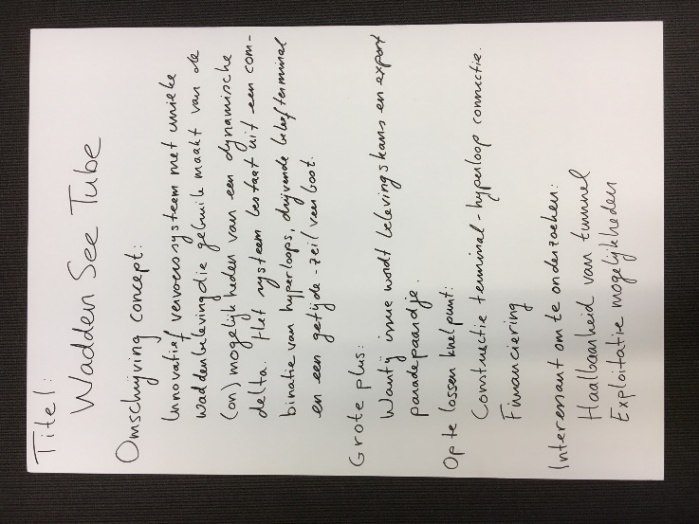 Titel:
Wadden See Tube
Omschrijving concept:
Innovatief vervoerssysteem met unieke
waddenbeleving die gebruik maakt van de
(on)mogelijkheden van een dynamische
delta. Het systeem bestaat uit een com-
binatie van hyperloops, drijvende beleefterminal
en een getijde-zeil veerboot.
Grote plus:
Wantij issue wordt belevingskans en export
paradepaardje.
Op te lossen knelpunt:
Constructie terminal-hyperloop connectie.
Financiering
Interessant om te onderzoeken:
Haalbaarheid van tunnel
Exploitatie mogelijkheden